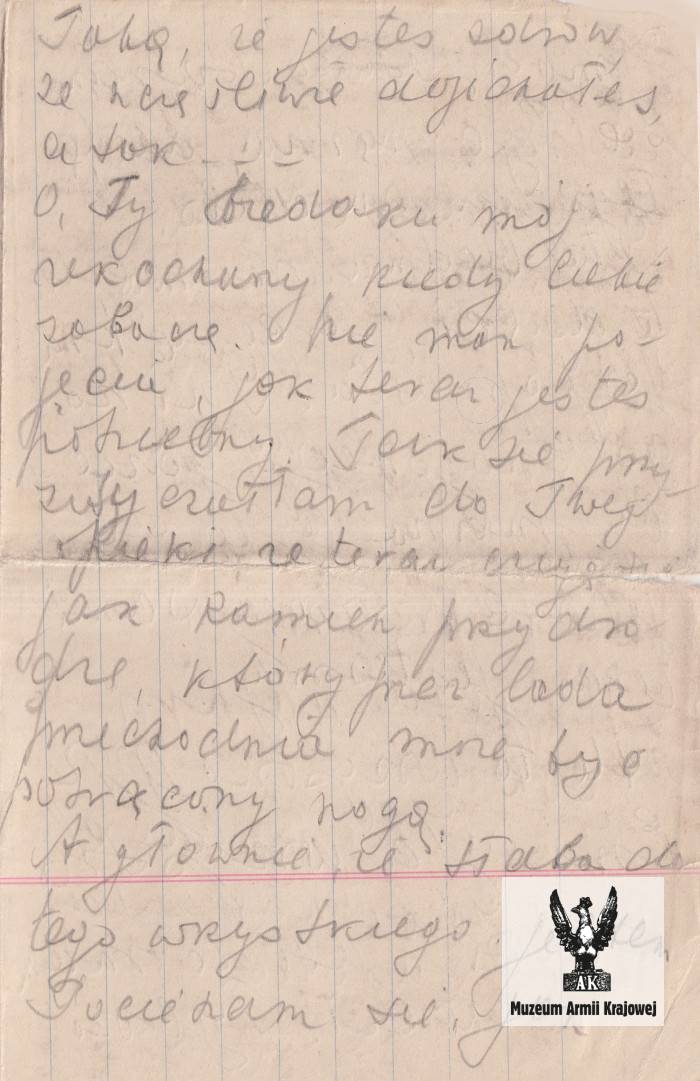 Tobą, że jesteś zdrów,
że szczęśliwie dojechałeś,
a tak - - -
O, Ty biedaku mój
ukochany, kiedy Ciebie
zobaczę. Nie masz po-
jęcia, jak teraz jesteś
potrzebny. Tak się przy
zwyczaiłam do Twej
opieki, że teraz czuję się
jak kamień przy dro
dze, który przez lada
przechodnia może być
potrącony nogą.
A głównie, że słaba do
tego wszystkiego jestem
Pocieszam się,
AK
Muzeum Armii Krajowej